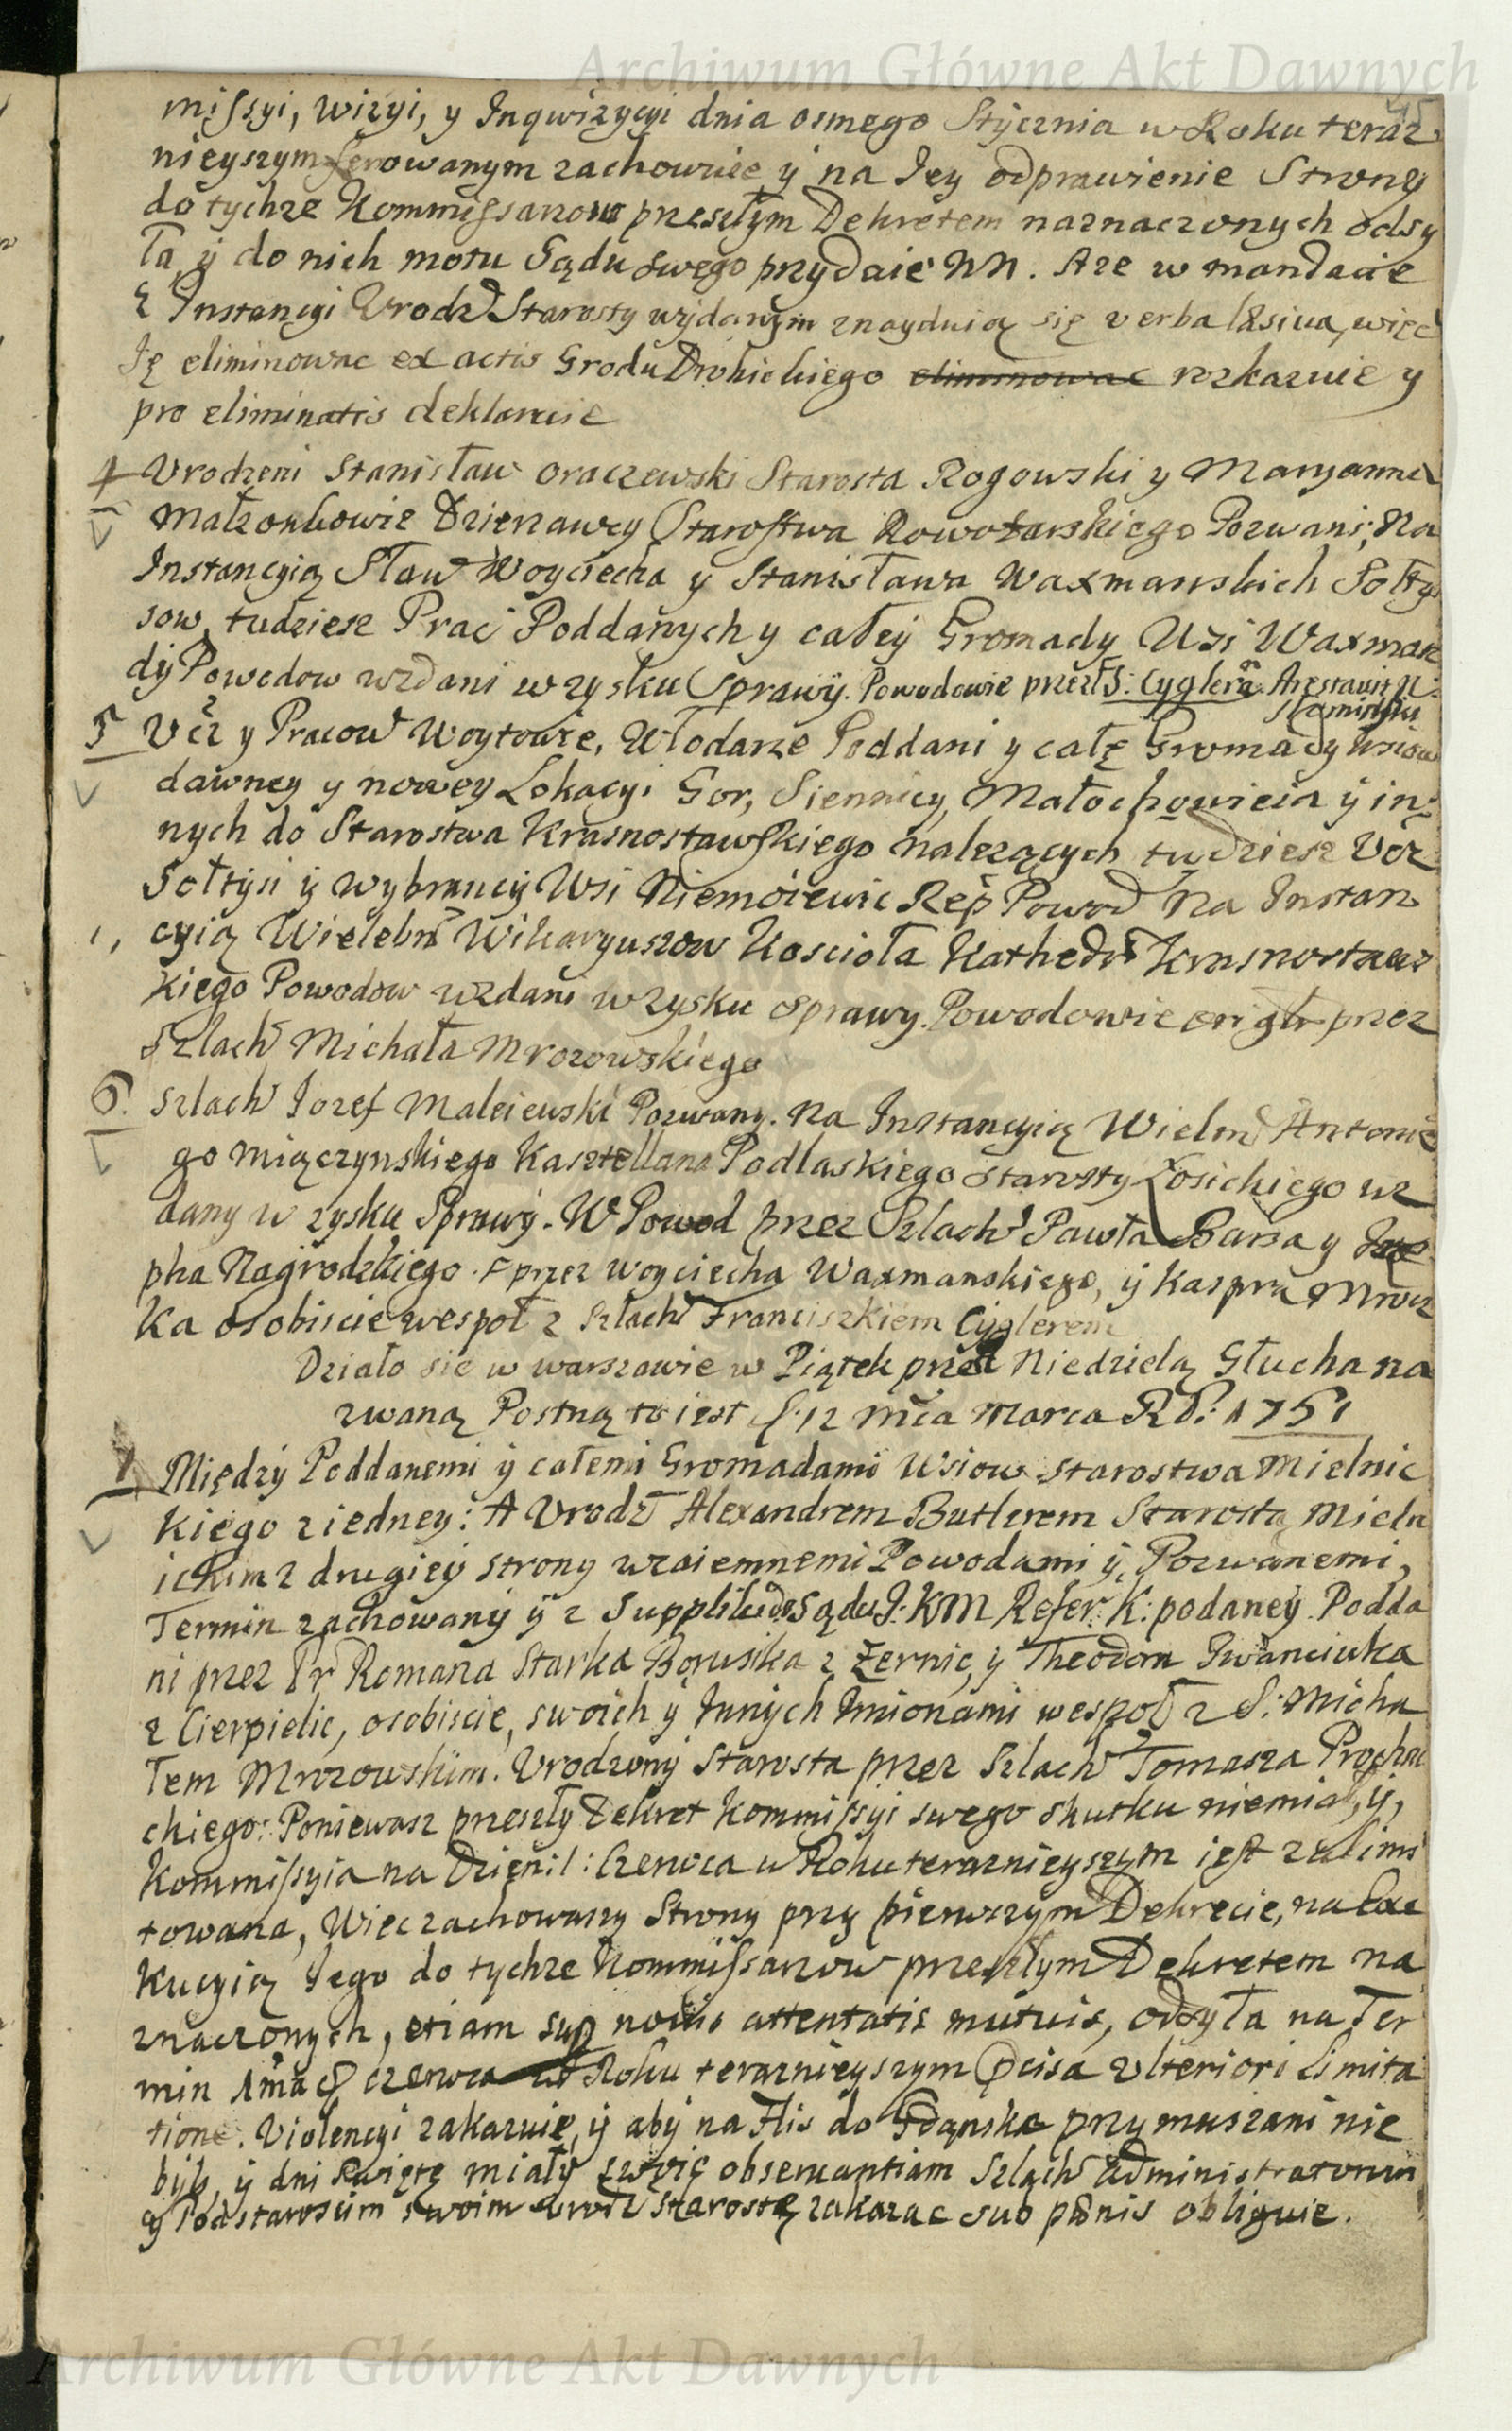 Archiwum Główne Akt Dawnych
45
missyi, wizyi, y Inqwizycyi dnia osmego Stycznia w Roku teraz
nieyszym ferowanym zachowuie y na Jey odprawienie Strony
do tychze Kommissarzow przeszłym Dekretem naznaczonych odsy
ła y do nich motu Sądu swego przydaie NN. Aze w mandacie
z Instancyi Vrodz Starosty wydanym znayduią się verba læsiva, więc
Ję eliminowac ex actis Grodu Drohickiego eliminowac rozkazuie y
pro eliminatis deklaruie
4 Vrodzeni Stanisław Oraczewski Starosta Rogowski y Maryanna
Małzonkowie Dzierzawcy Starostwa Nowotarskiego Pozwani; Na
Instancyią Sław Woyciecha y Stanisława Waxmanskich Sołty
sow, tudziesz Prac Poddanych y całey Gromady Wsi Waxmun
dy Powodow wzdani w zysku Sprawy. Powodowie przez S: Cyglera
5 Vcz y Pracow Woytowie, Włodarze Poddani y całę Gromady wsiow
dawney y nowey Lokacyi Gor, Siennicy, Małochowicia y in:
nych do Starostwa Krasnostawskiego nalezących tudziesz Vcz
Sołtysi y wybrancy Wsi Niemoiewic Rep Powod Na Instan
cyią Wielebn Wikaryuszow Koscioła Kathedr Krasnostaws
kiego Powodow wzdani w zysku Sprawy. Powodowie przez
Szlach Michała Mrozowskiego
6. Szlach Jozef Maleiewski Pozwany. Na Instancyią Wielm Antonie
go Miączynskiego Kasztellana Podlaskiego Starosty Łosickiego wz
dany w zysku Sprawy. W Powod przez Szlach Pawła Barza y Joze
pha Nagrodzkiego. przez Woyciecha Waxmanskiego, y Kaspra Mrocz
ka osobiscie wespoł z Szlach Franciszkiem Cyglerem
Działo się w warszawie w Piątek przed Niedzielą Głucha na
zwaną Postną to iest d. 12 Mca Marca RP: 1751
7 Między Poddanemi y całemi Gromadami Wsiow Starostwa Mielnic
kiego z iedney: A Vrodz Alexandrem Butlerem Starostą Mieln
ickim z drugiey strony wzaiemnemi Powodami y Pozwanemi,
Termin zachowany y z Suppliki do Sądu J: KM Refer: K: podaney. Podda
ni przez Pr Romana Starka Borusika z Zernic, y Theodora Iwanciuka
z Cierpielic, osobiscie, swoich y Innych Imionami wespoł z S: Micha
łem Mrozowskim. Vrodzony Starosta przez Szlach Tomasza Prochac
ckiego: Poniewasz przeszły Dekret Kommissyi swego skutku niemiał, y,
Kommissyia na Dzien 1: Czerwca w Roku teraznieyszym iest zalimi
towana, Więc zachowaszy Strony przy pierwszym Dekrecie, na Exe
kucyią Jego do tychze Kommissarzow przeszłym Dekretem na
znaczonych, etiam sup novis attentatis mutuis, odsyła na Ter
min 1ma d czerwca w Roku teraznieyszym Pcisa Vlteriori Limita
tione. Violencyi zakazuie, y aby na Flis do Gdanska przymuszani nie
byli, y dni Swięte miały swoię observantiam Szlach Administratorom
y Podstaroscim swoim Vrodz Starostę zakazac sub pœnis obliguie.
Archiwum Główne Akt Dawnych